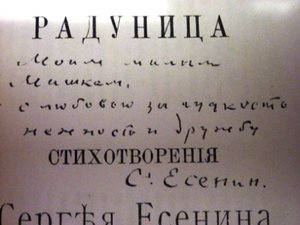 РАДУНИЦА
Моим милым
Машкам,
с любовью за чуткость
нежность и дружбу
СТИХОТВОРЕНІЯ
С. Есенин.
Сергѣя Есенина